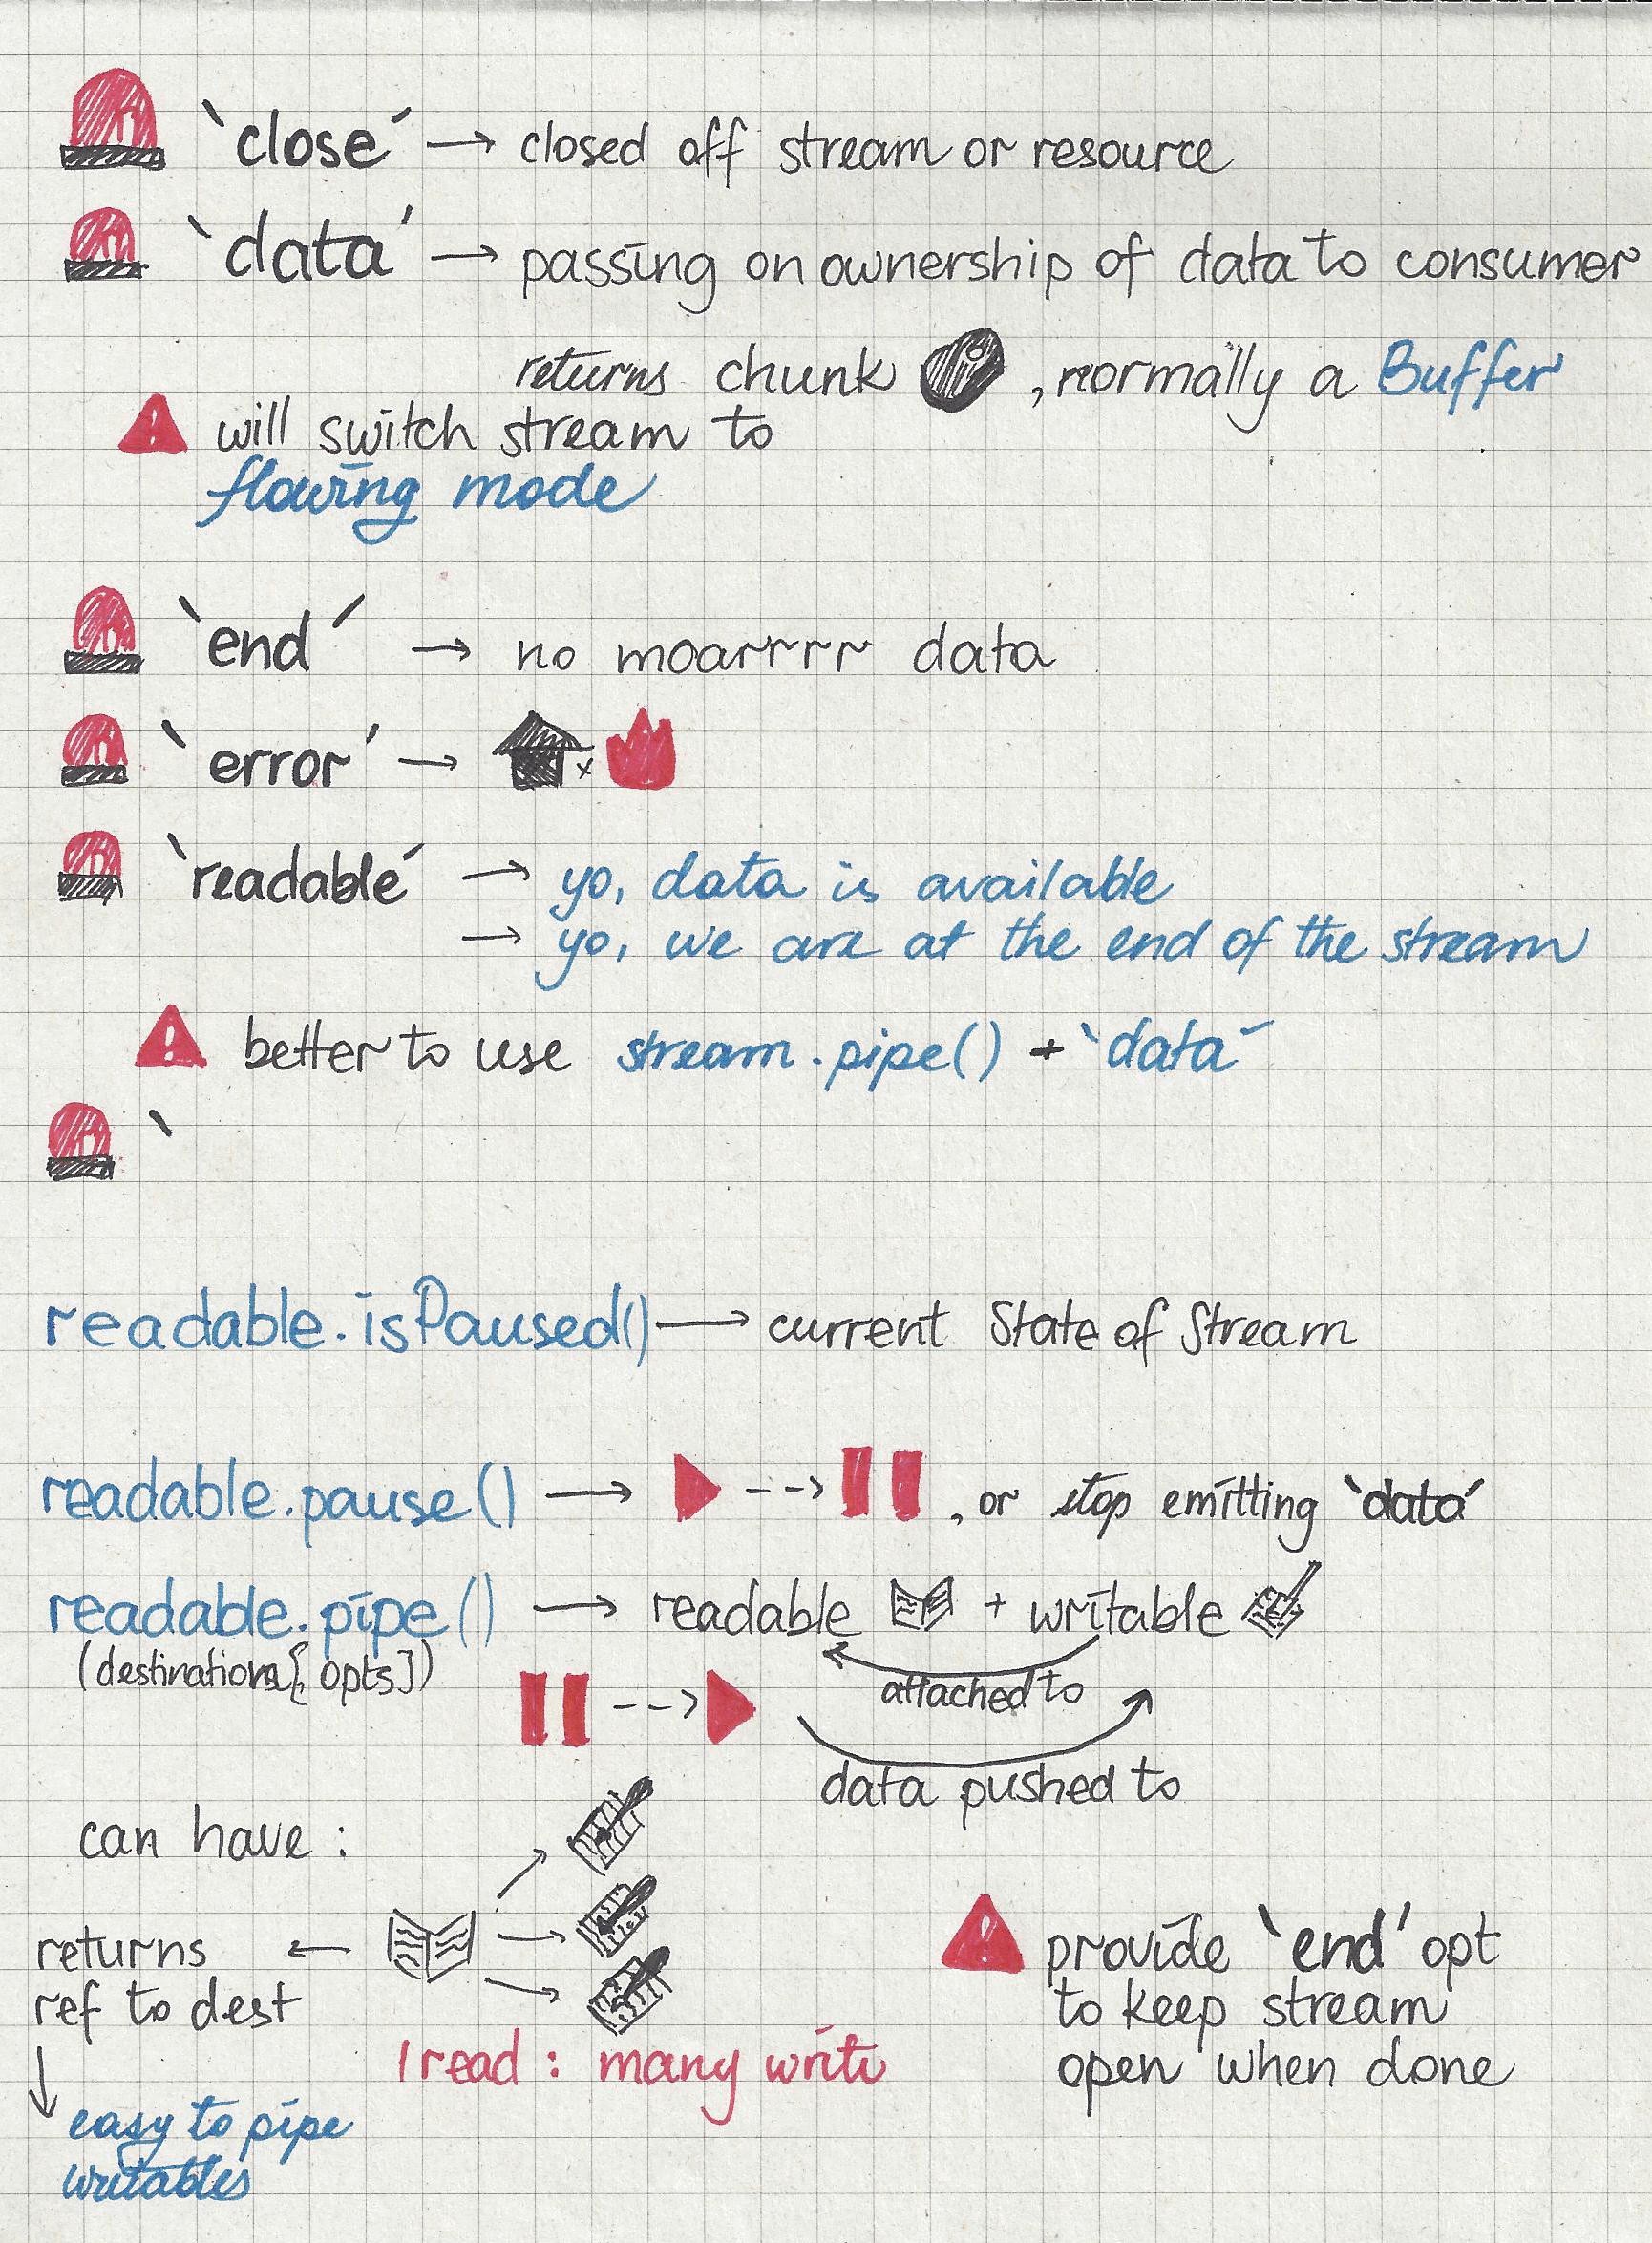 `close´ → closed off stream or resource
`data´ → passing on ownership of data to consumer
returns chunk , normally a Buffer
! will switch stream to
flowing mode
`end´ → no moarrrr data
`error´ →
`readable´ → yo, data is available
→ yo, we are at the end of the stream
! better to use stream.pipe() + `data´
`
readable.isPaused() → current State of Stream
readable.pause() → --> , or stop emitting `data´
readable.pipe() → readable + writable
(destination[, opts])
attached to
-->
data pushed to
can have:
returns ←
ref to dest
1 read : many write
↓
easy to pipe
writables
! provide `end´ opt
to keep stream
open when done